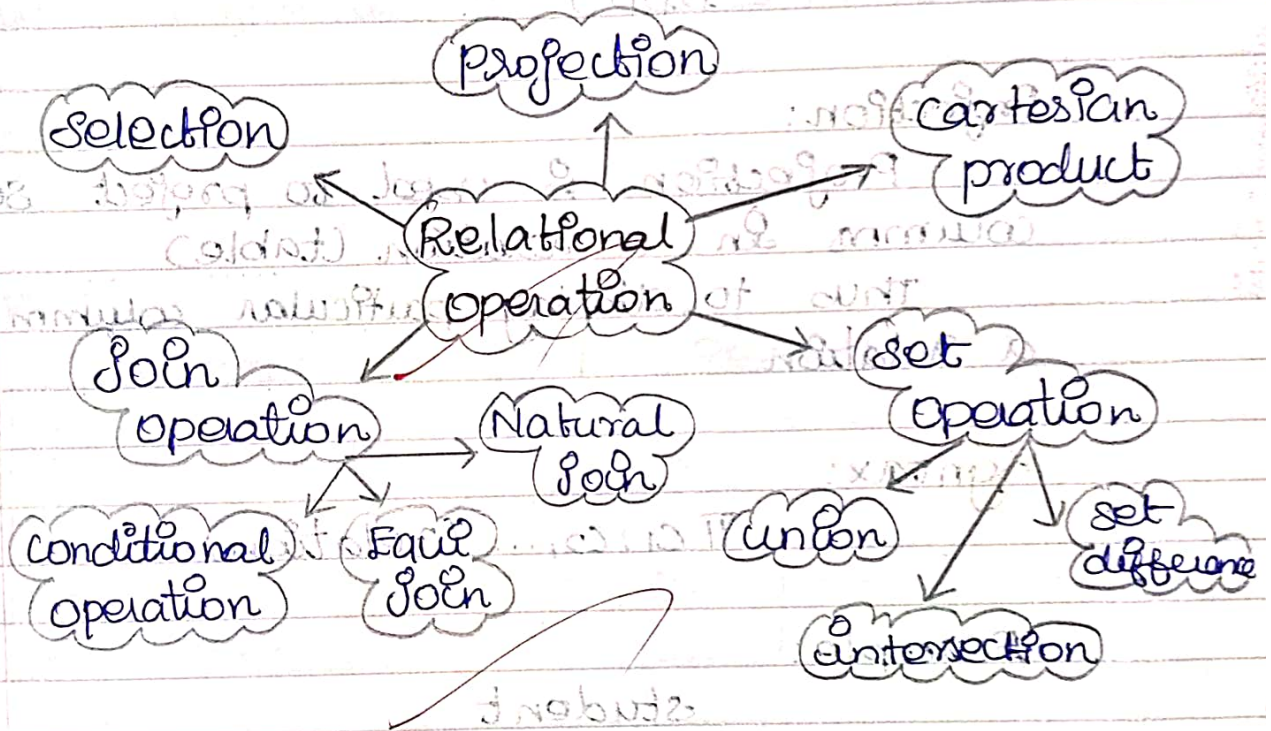 Projection
Selection
Cartesian
product
Relational
operation
Join
operation
Set
operation
Natural
Join
Conditional
operation
Equi
Join
Union
set
difference
intersection
student